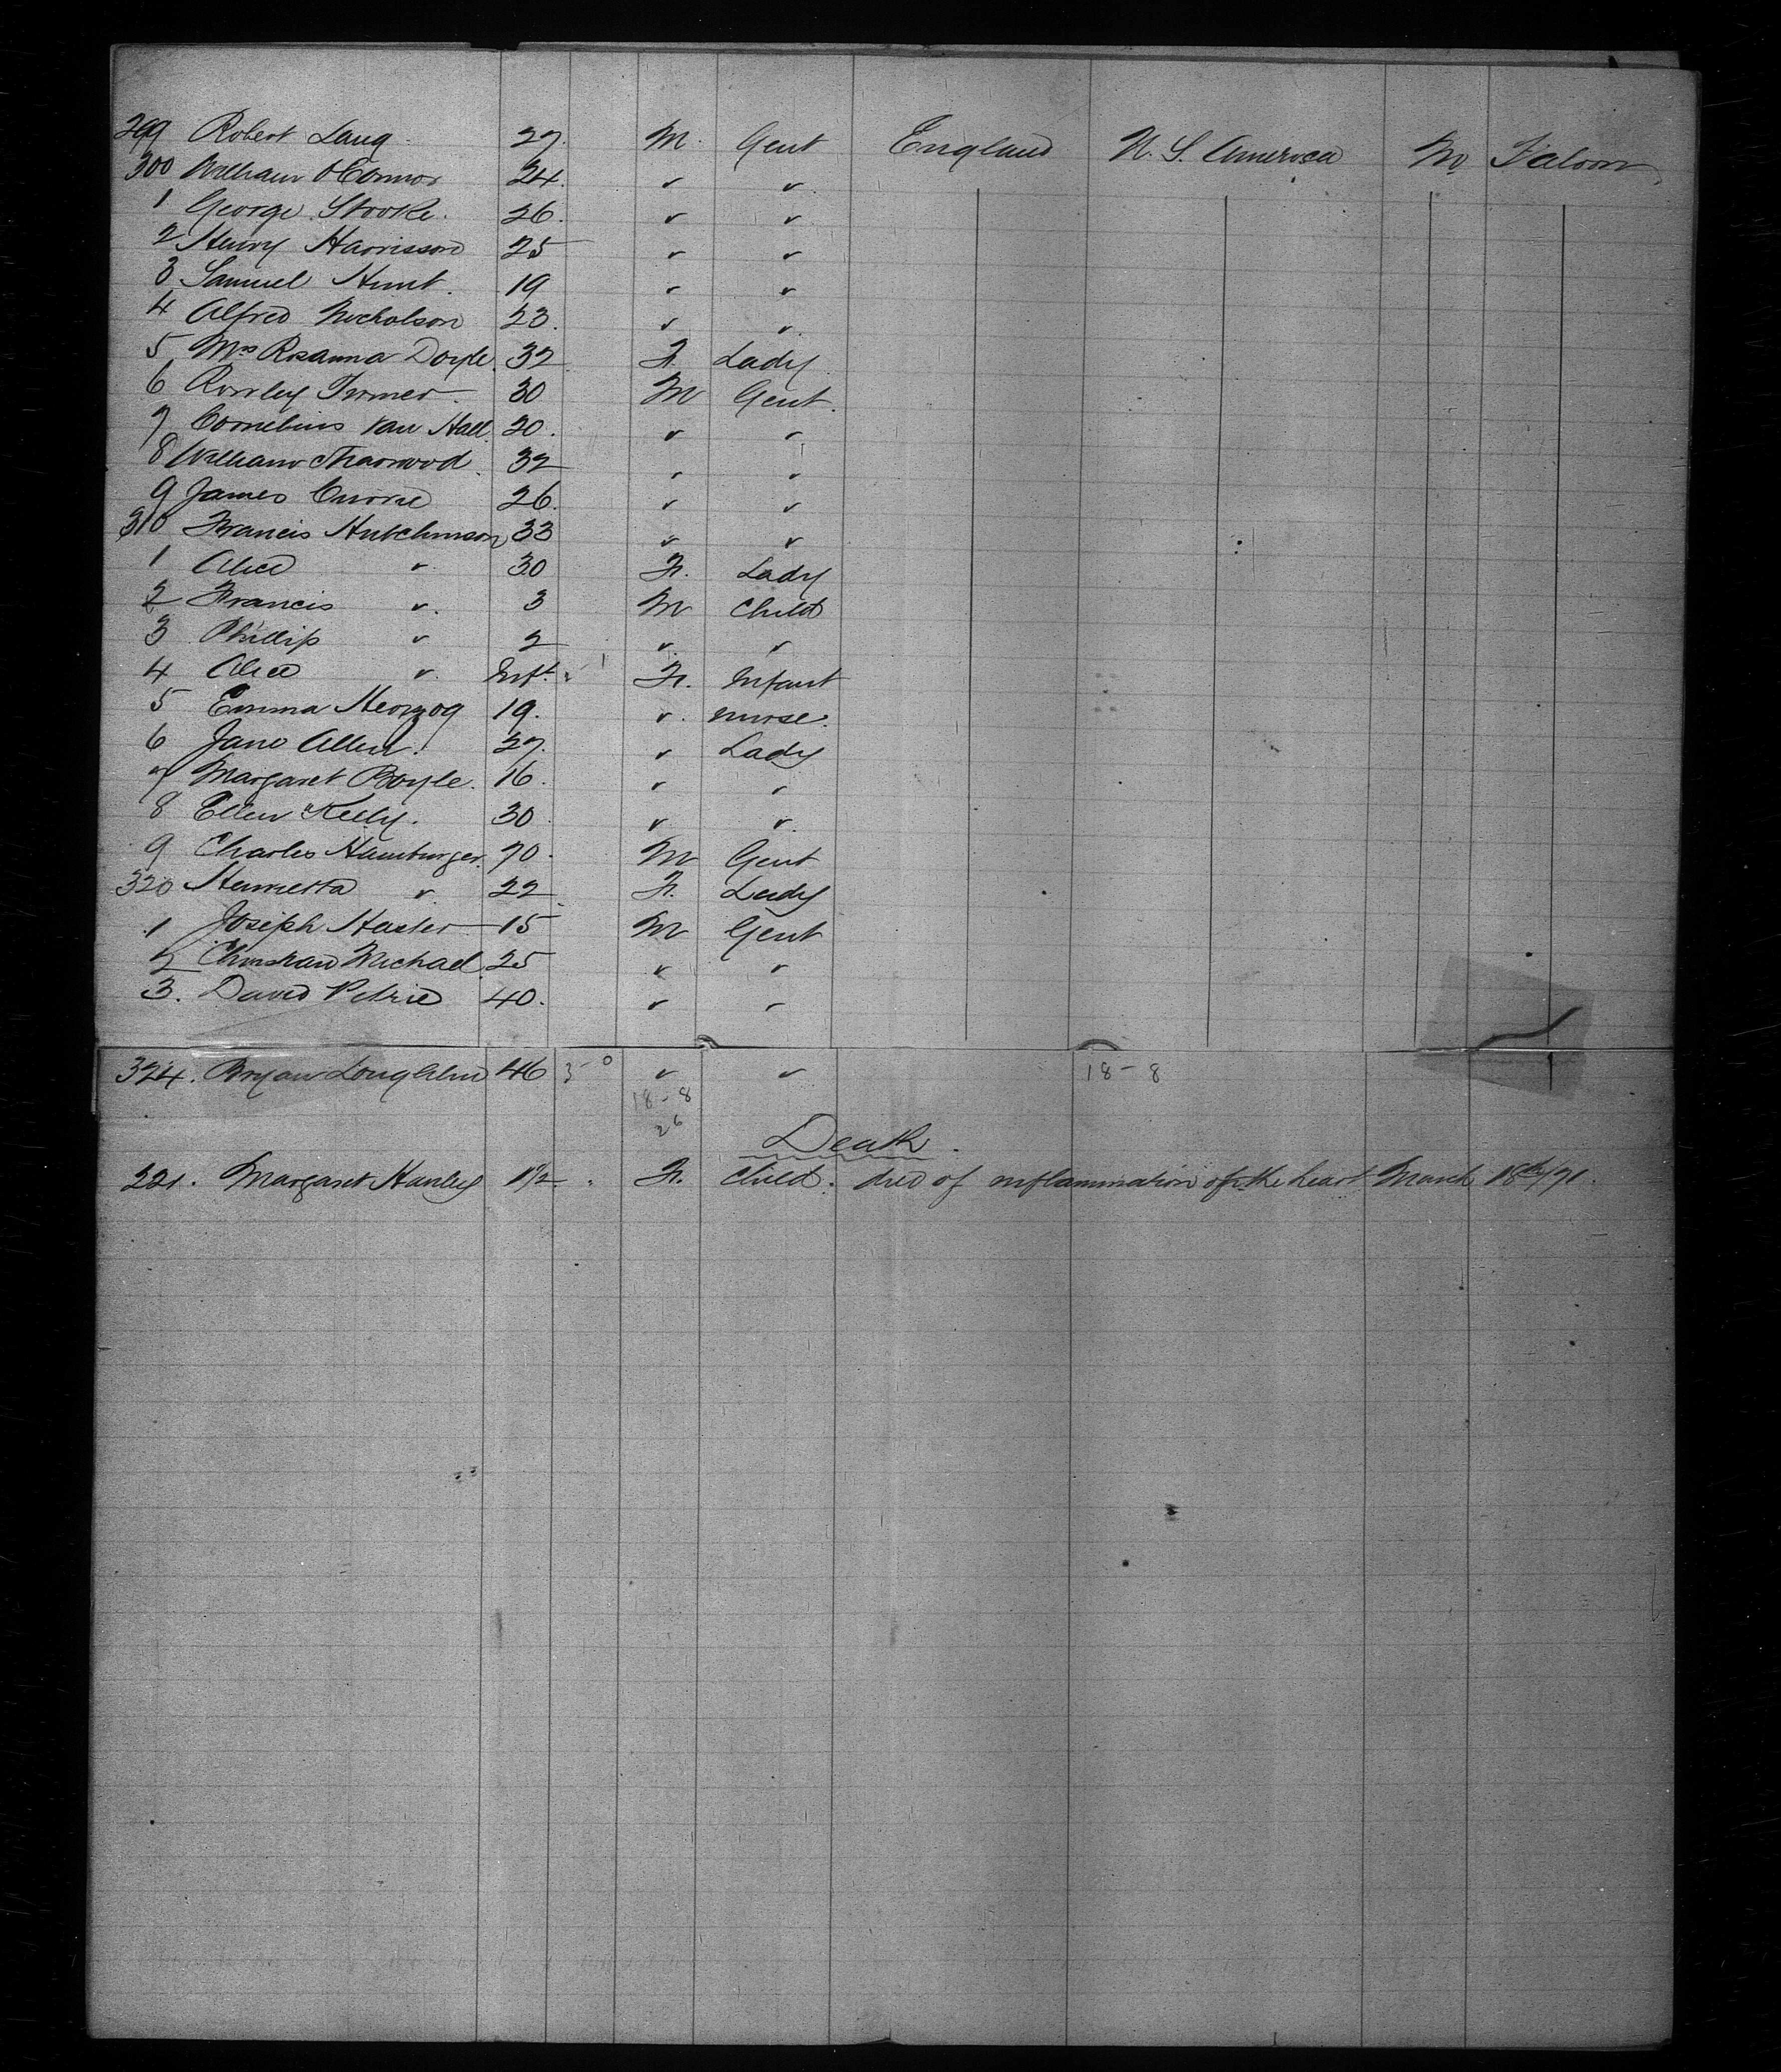 299 Robert Lang 27. M. Gent England U. S. America M Saloon
300 William O'Connor 24. " "
1 George Stooke. 26. " "
2 Henry Harrisson 25 " "
3 Samuel Hunt. 19 " "
4 Alfred Nicholson 23. " "
5 Mrs Rosanna Doyle 32 F. Lady
6 Rowley Turner. 30 M Gent.
7 Cornelius Van Hall 20. " "
8 William Sharwood. 32 " "
9 James Currie 26. " "
310 Francis Hutchinson 33 " "
1 Alice " 30 F. Lady
2 Francis " 3 M Child
3 Phillip " 2 " "
4 Alice " Inft. F. Infant
5 Emma Herzog 19. " nurse.
6 Jane Allen. 27. " Lady
7 Margaret Boyle. 16. " "
8 Ellen Kelly. 30. " "
9 Charles Hamburger. 70. M Gent
320 Henrietta " 22 F. Lady
1 Joseph 15 M Gent
2 Christian Michael 25 " "
3. David Petrie 40. " "
324. Bryan Loughlin 46 3-0 " " 18-8
18-8
26
Death.
221. Margaret Hanley 1½ " F. Child. died of inflammation of the heart March 18th/71.